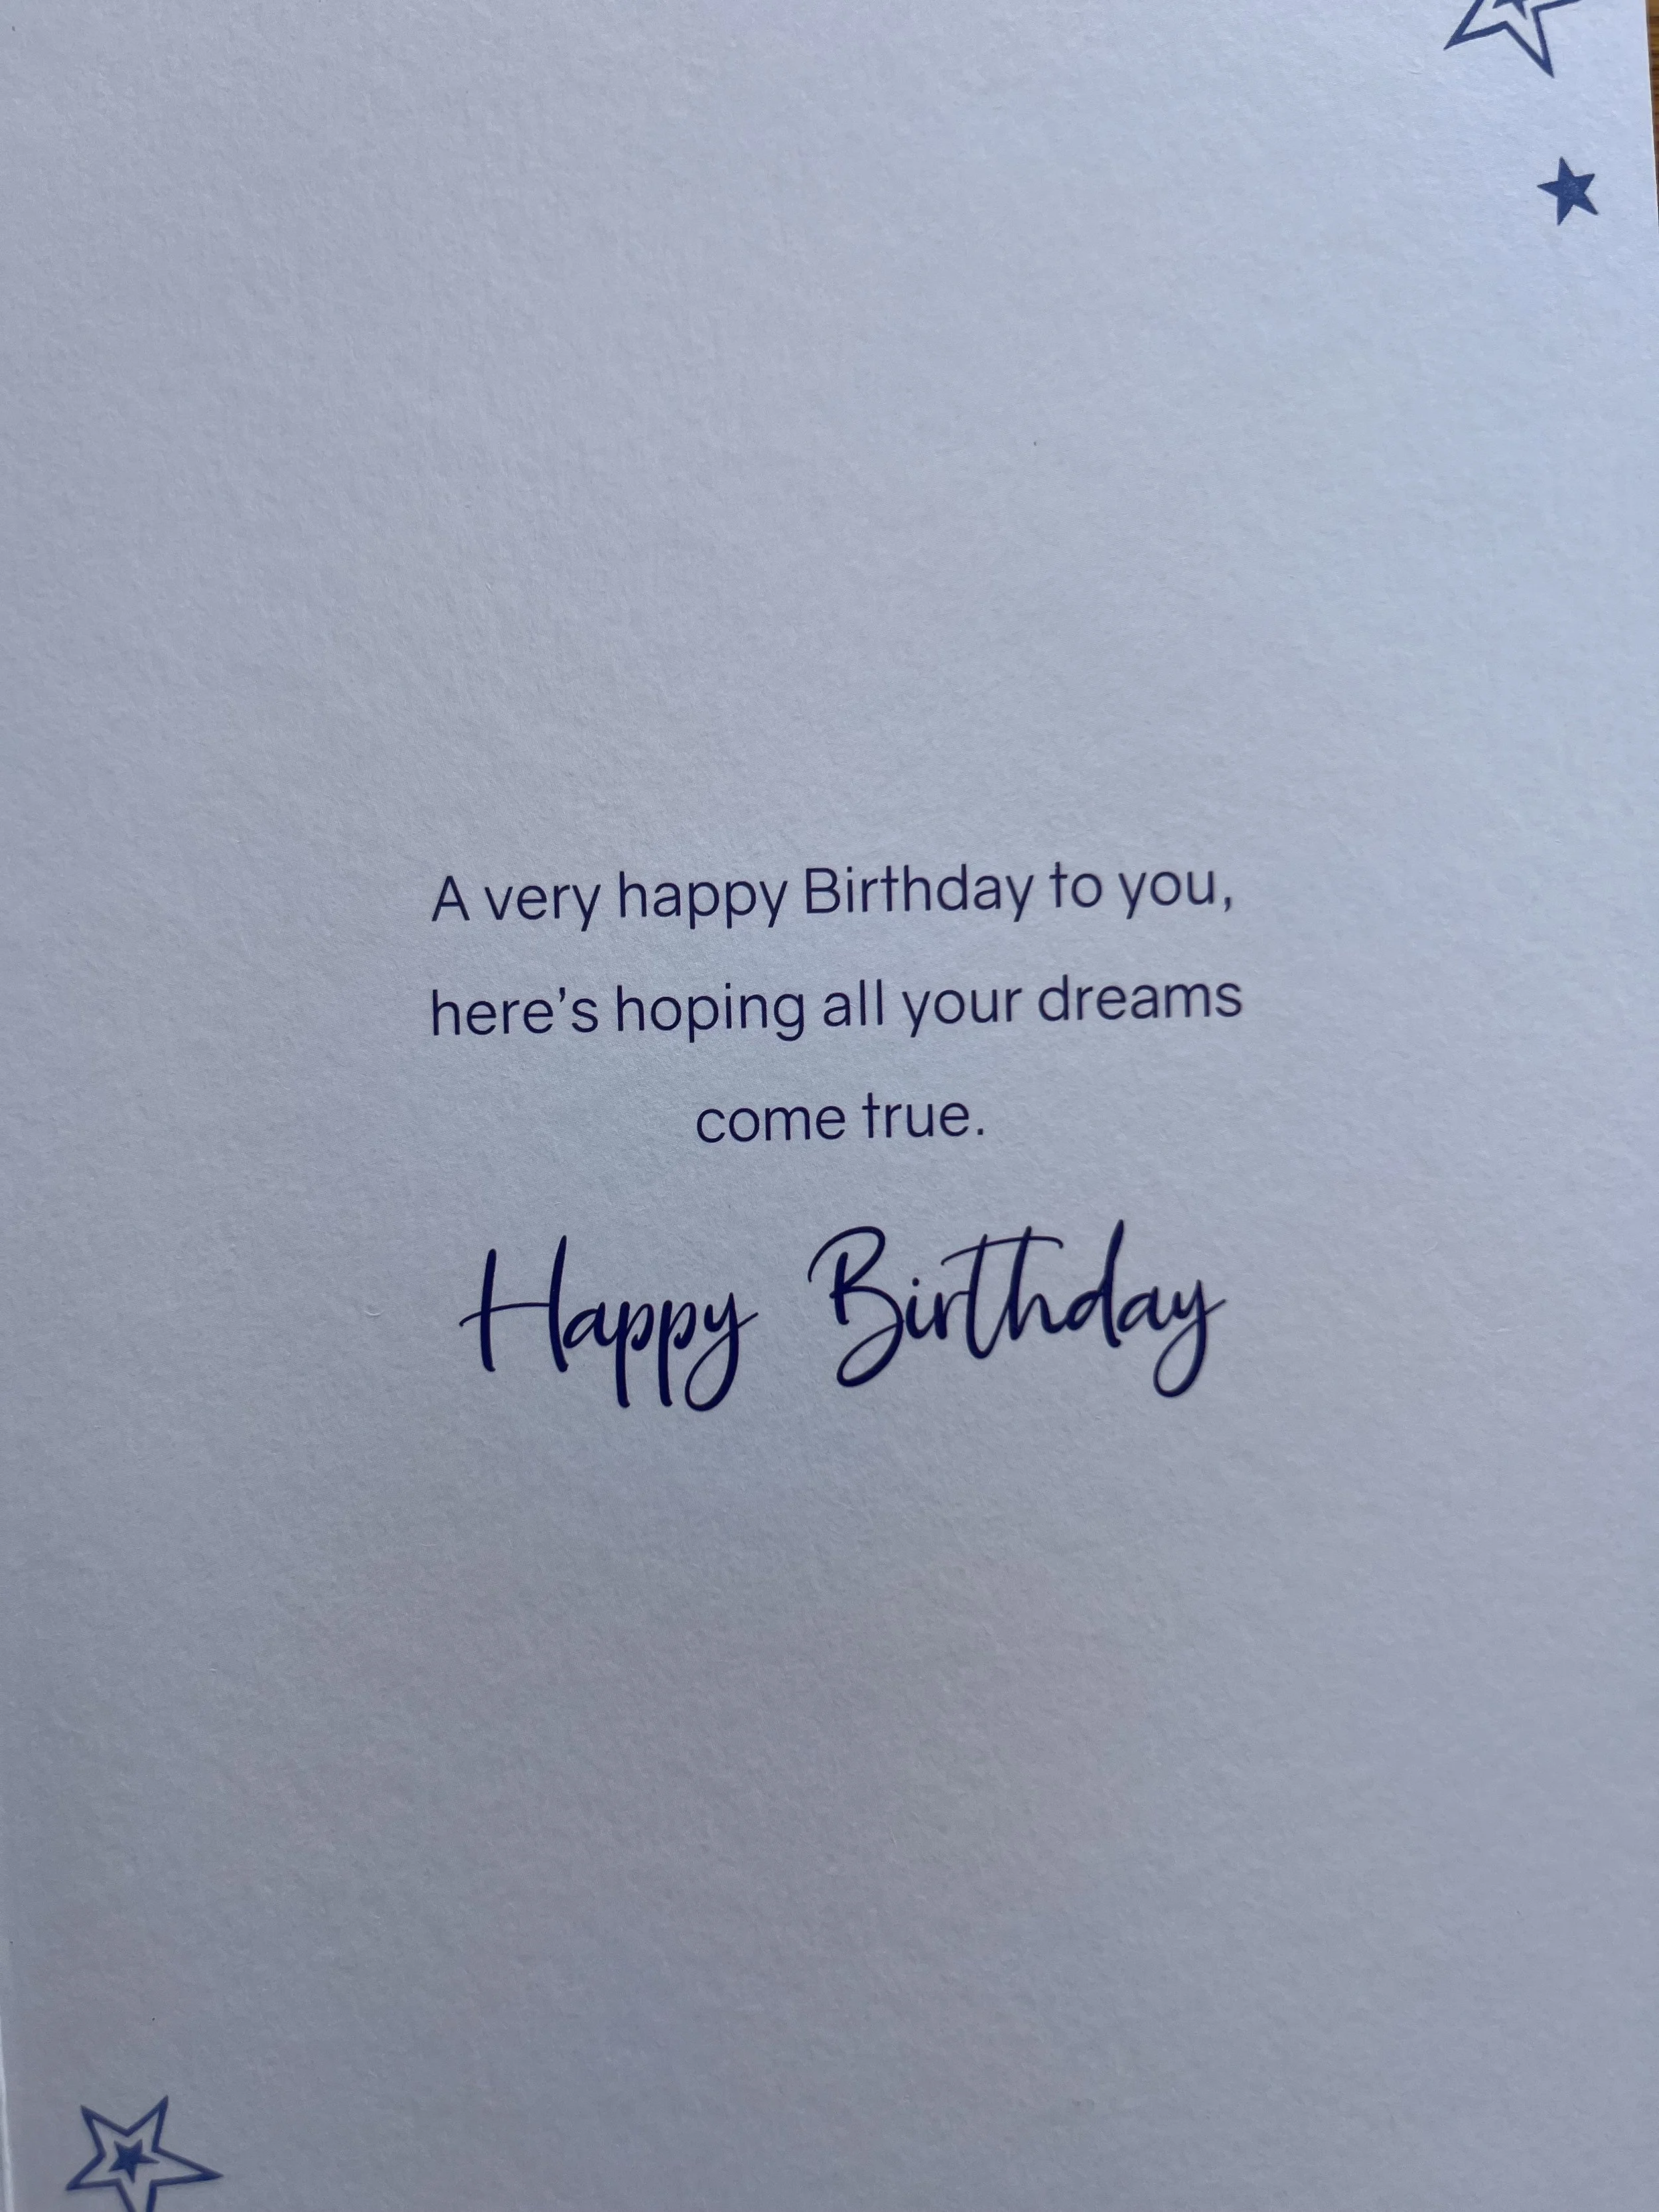 A very happy Birthday to you,
here's hoping all your dreams
come true.
Happy Birthday